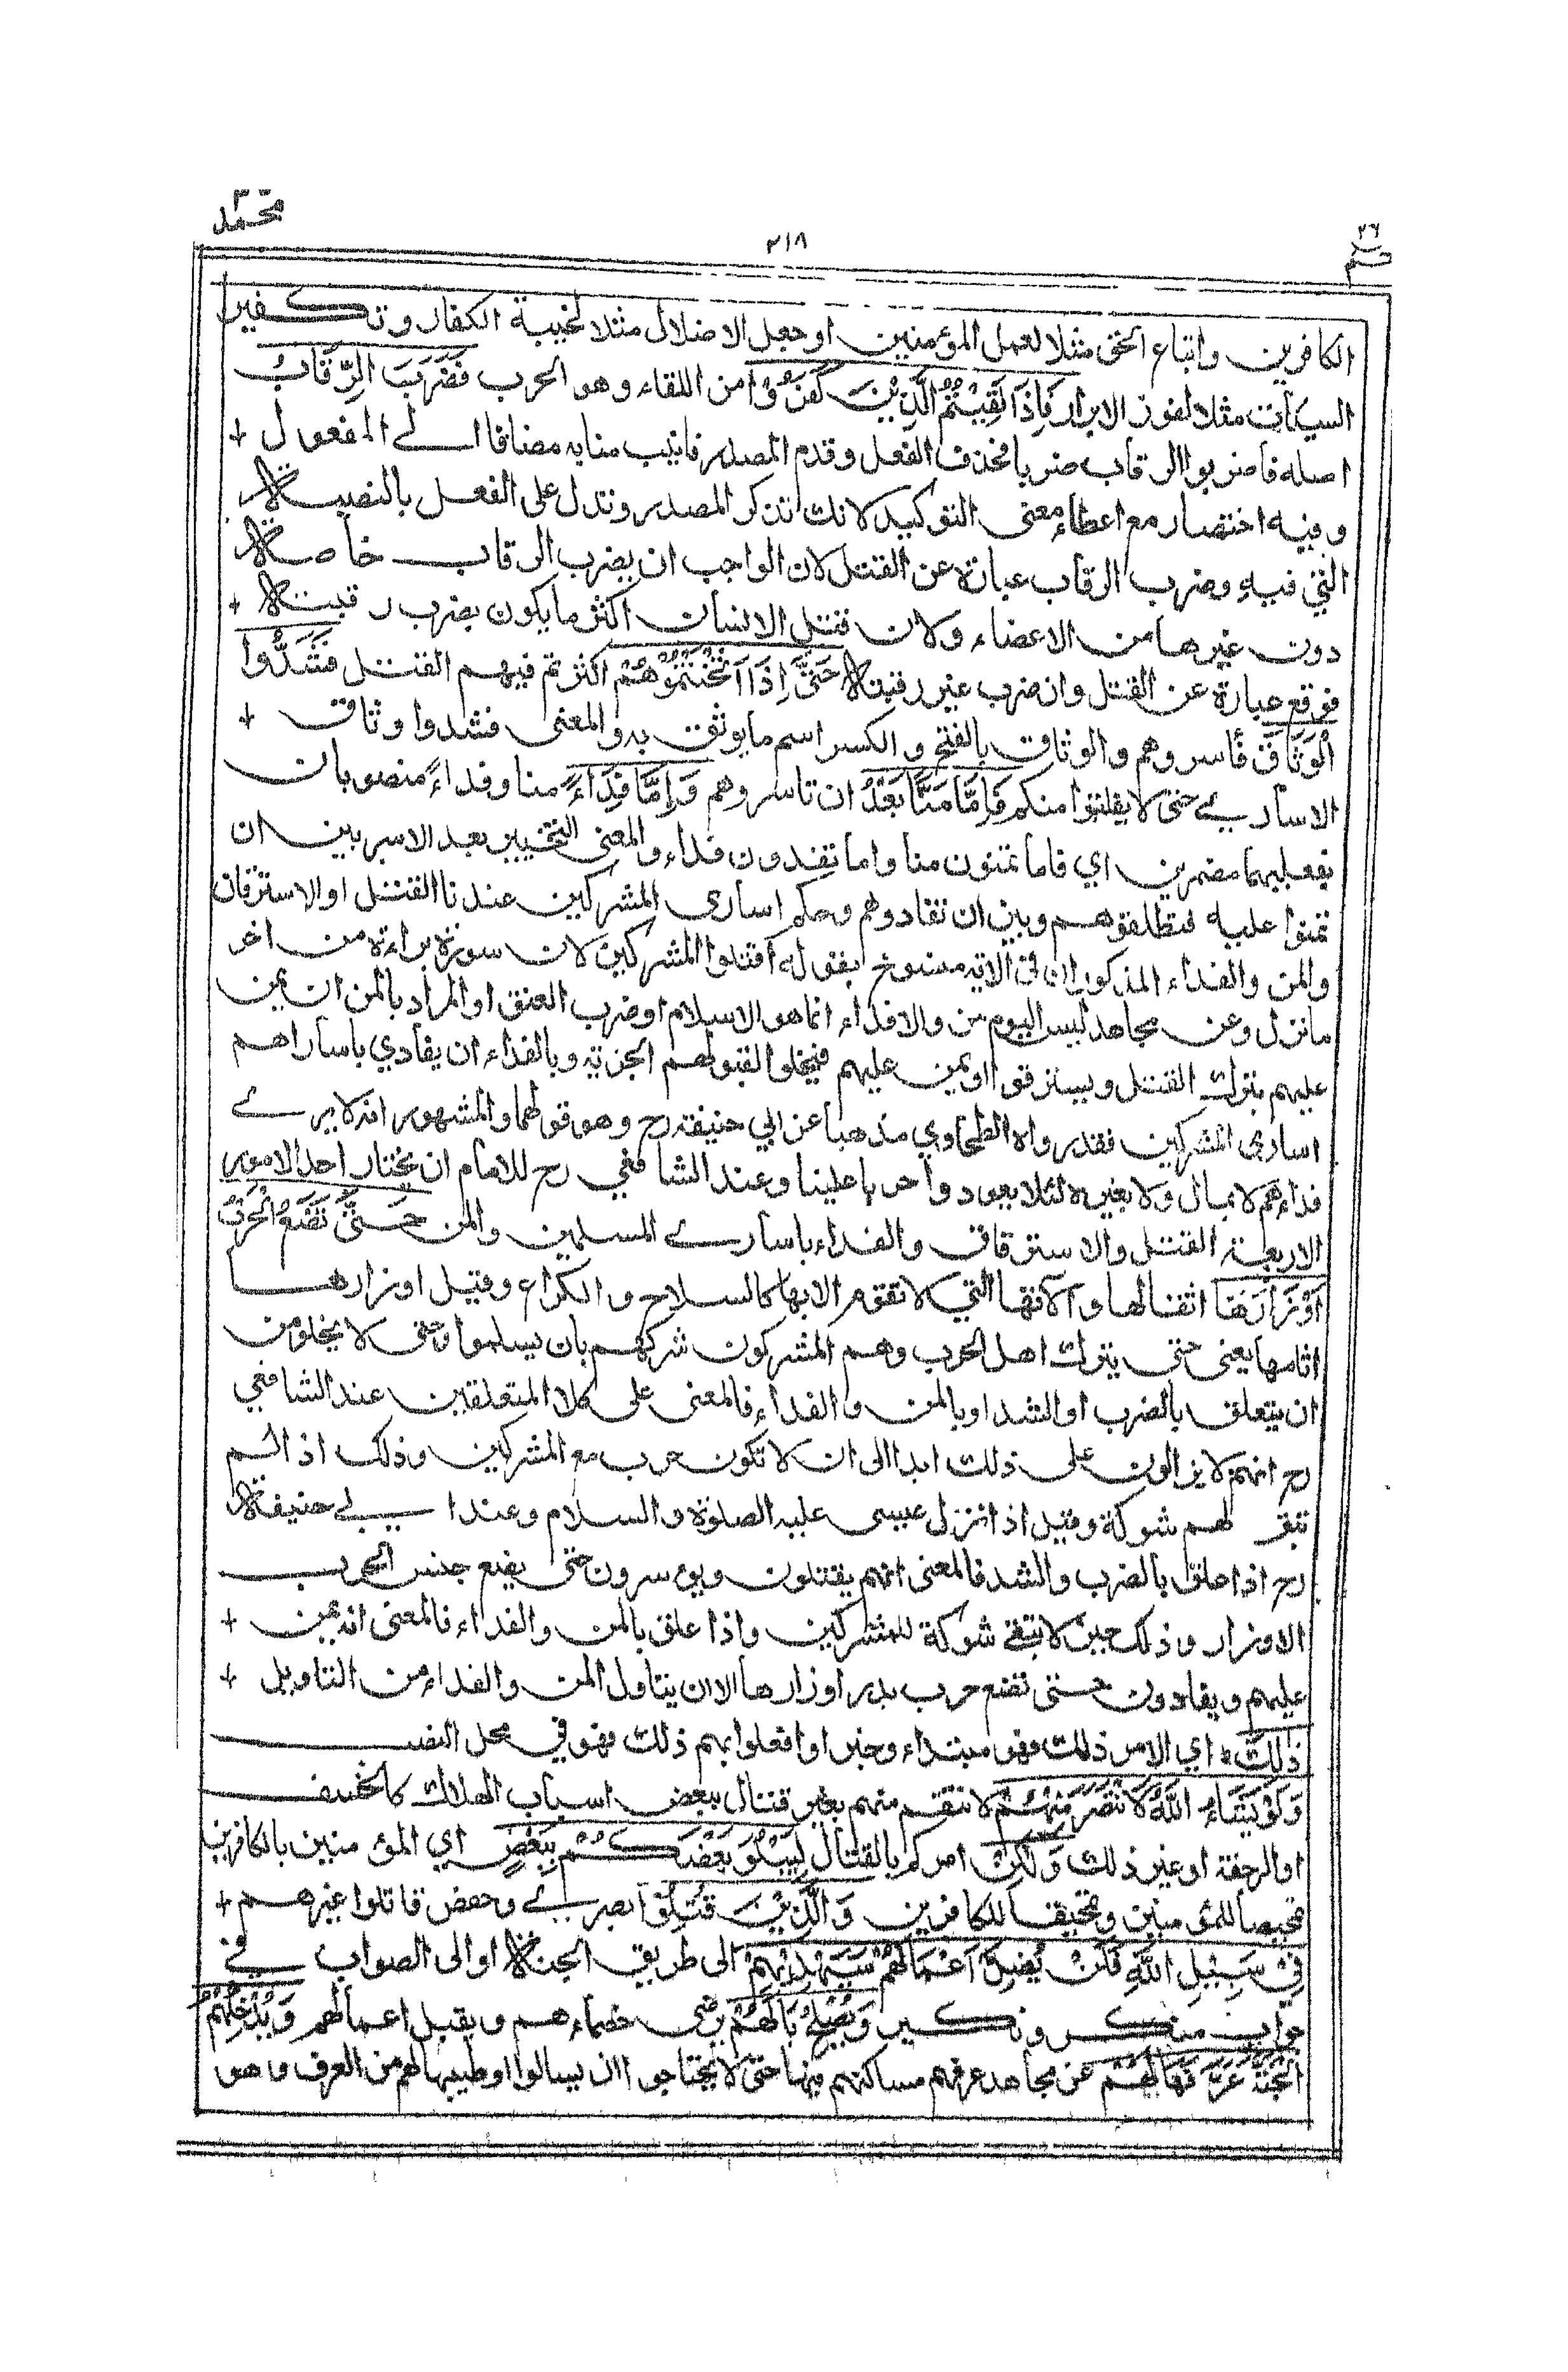 محمد
٣١٨
حم ٢٦
الكافرين واتباع الحق مثلا لعمل المؤمنين او جعل الاضلال مثلا لخيبة الكفار وتكفير
السيآت مثلا لفوز الابرار فَاِذَا لَقِيْتُمُ الَّذِيْنَ كَفَرُوْا من اللقاء وهو الحرب فَضَرْبَ الرِّقَابِ
اصله فاضربوا الرقاب ضربا فحذف الفعل وقدم المصدر فانيب منابه مضافا الے المفعول
وفيه اختصار مع اعطاء معنى التوكيد لانك تذكر المصدر وتدل على الفعل بالنصبة
التي فيه وضرب الرقاب عبارة عن القتل لان الواجب ان يضرب الرقاب خاصة
دون غيرها من الاعضاء ولان قتل الانسان اكثر ما يكون بضرب رقبته
فوقع عبارة عن القتل وان ضرب غير رقبته حَتّٰى اِذَا اَثْخَنْتُمُوْهُمْ اكثرتم فيهم القتل فَشُدُّوا
الْوَثَاقَ فأسروهم والوثاق بالفتح والكسر اسم ما يوثق به والمعنى فشدوا وثاق
الاسارے حتى لا يفلتوا منكم فَاِمَّا مَنًّا بَعْدُ ان تاسروهم وَاِمَّا فِدَاءً منا وفداءً منصوبان
بفعليهما مضمرين اي فاما تمنون منا واما تفدون فداء والمعنى التخيير بعد الاسر بين ان
تمنوا عليه فتطلقوهم وبين ان تفادوهم وحكم اسارى المشركين عندنا القتل او الاسترقاق
والمن والفداء المذكوران فى الاية منسوخ بقوله اقتلوا المشركين لان سورة براءة من اخر
ما نزل وعن مجاهد ليس اليوم من ولا فداء انما هو الاسلام او ضرب العنق او المراد بالمن ان يمن
عليهم بترك القتل ويسترقوا او يمن عليهم فيخلوا لقبولهم الجزية وبالفداء ان يفادي باساراهم
اسارى المشركين فقد رواه الطحاوي مذهبا عن ابي حنيفة رح وهو قولهما والمشهور انه لا يرے
فداءهم لا بمال ولا بغيره لئلا يعودوا حربا علينا وعند الشافعي رح للامام ان يختار احد الامور
الاربعة القتل والاسترقاق والفداء باسارے المسلمين والمن حَتّٰى تَضَعَ الْحَرْبُ
اَوْزَارَهَا اثقالها وآلاتها التي لا تقوم الا بها كالسلاح والكراع وقيل اوزارها
اثامها يعنى حتى يترك اهل الحرب وهم المشركون شركهم بان يسلموا وحتى لا يخلو من
ان يتعلق بالضرب او الشد او بالمن والفداء فالمعنى على كلا المتعلقين عند الشافعي
رح انهم لا يزالون على ذلك ابدا الى ان لا تكون حرب مع المشركين وذلك اذا لم
تبق لهم شوكة وقيل اذا نزل عيسى عليه الصلوة والسلام وعند ابے حنيفة
رح اذا علق بالضرب والشد فالمعنى انهم يقتلون ويؤسرون حتى يضع جنس الحرب
الاوزار وذلك حين لا تبقے شوكة للمشركين واذا علق بالمن والفداء فالمعنى انه يمن
عليهم ويفادون حتى تضع حرب بدر اوزارها الا ان يتاول المن والفداء من التاويل
ذٰلِكَ اي الامر ذلك فهو مبتداء وخبر او افعلوا بهم ذلك فهو في محل النصب
وَلَوْ يَشَاءُ اللّٰهُ لَانْتَصَرَ مِنْهُمْ لانتقم منهم بغير قتال ببعض اسباب الهلاك كالخسف
او الرجفة او غير ذلك وَلٰكِنْ امركم بالقتال لِيَبْلُوَ بَعْضَكُمْ بِبَعْضٍ اي المؤمنين بالكافرين
تمحيصا للمؤمنين وتمحيقا للكافرين وَالَّذِيْنَ قُتِلُوْا بصرے وحفص قاتلوا غيرهم
فِيْ سَبِيْلِ اللّٰهِ فَلَنْ يُضِلَّ اَعْمَالَهُمْ سَيَهْدِيْهِمْ الى طريق الجنة او الى الصواب في
جواب منكر ونكير وَيُصْلِحُ بَالَهُمْ يرضى خصماءهم ويقبل اعمالهم وَيُدْخِلُهُمُ
الْجَنَّةَ عَرَّفَهَا لَهُمْ عن مجاهد عرفهم مساكنهم فيها حتى لا يحتاجوا ان يسالوا او طيبها لهم من العرف وهو